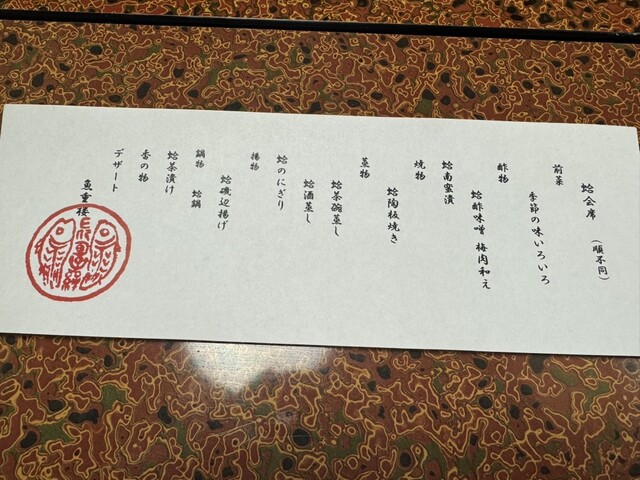 蛤会席 (順不同)
前菜
季節の味いろいろ
酢物
蛤酢味噌 梅肉和え
蛤南蛮漬
焼物
蛤陶板焼き
蒸物
蛤茶碗蒸し
蛤酒蒸し
蛤のにぎり
揚物
蛤磯辺揚げ
鍋物 蛤鍋
蛤茶漬け
香の物
デザート
魚重楼